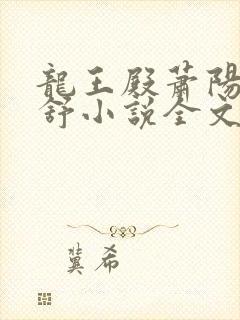 龍王殿蕭陽
舒小説全文
冀希